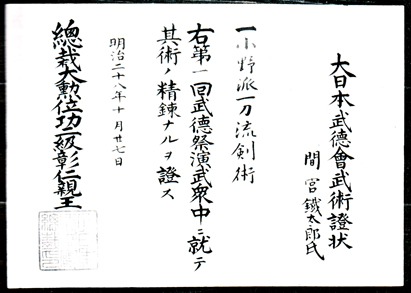 大日本武德會武術證狀
間宮鐵太郎氏
一小野派一刀流劍術
右第一回武德祭演武衆中ニ就テ
其術ノ精鍊ナルヲ證ス
明治二十八年十月廿七日
總裁大勲位功二級彰仁親王